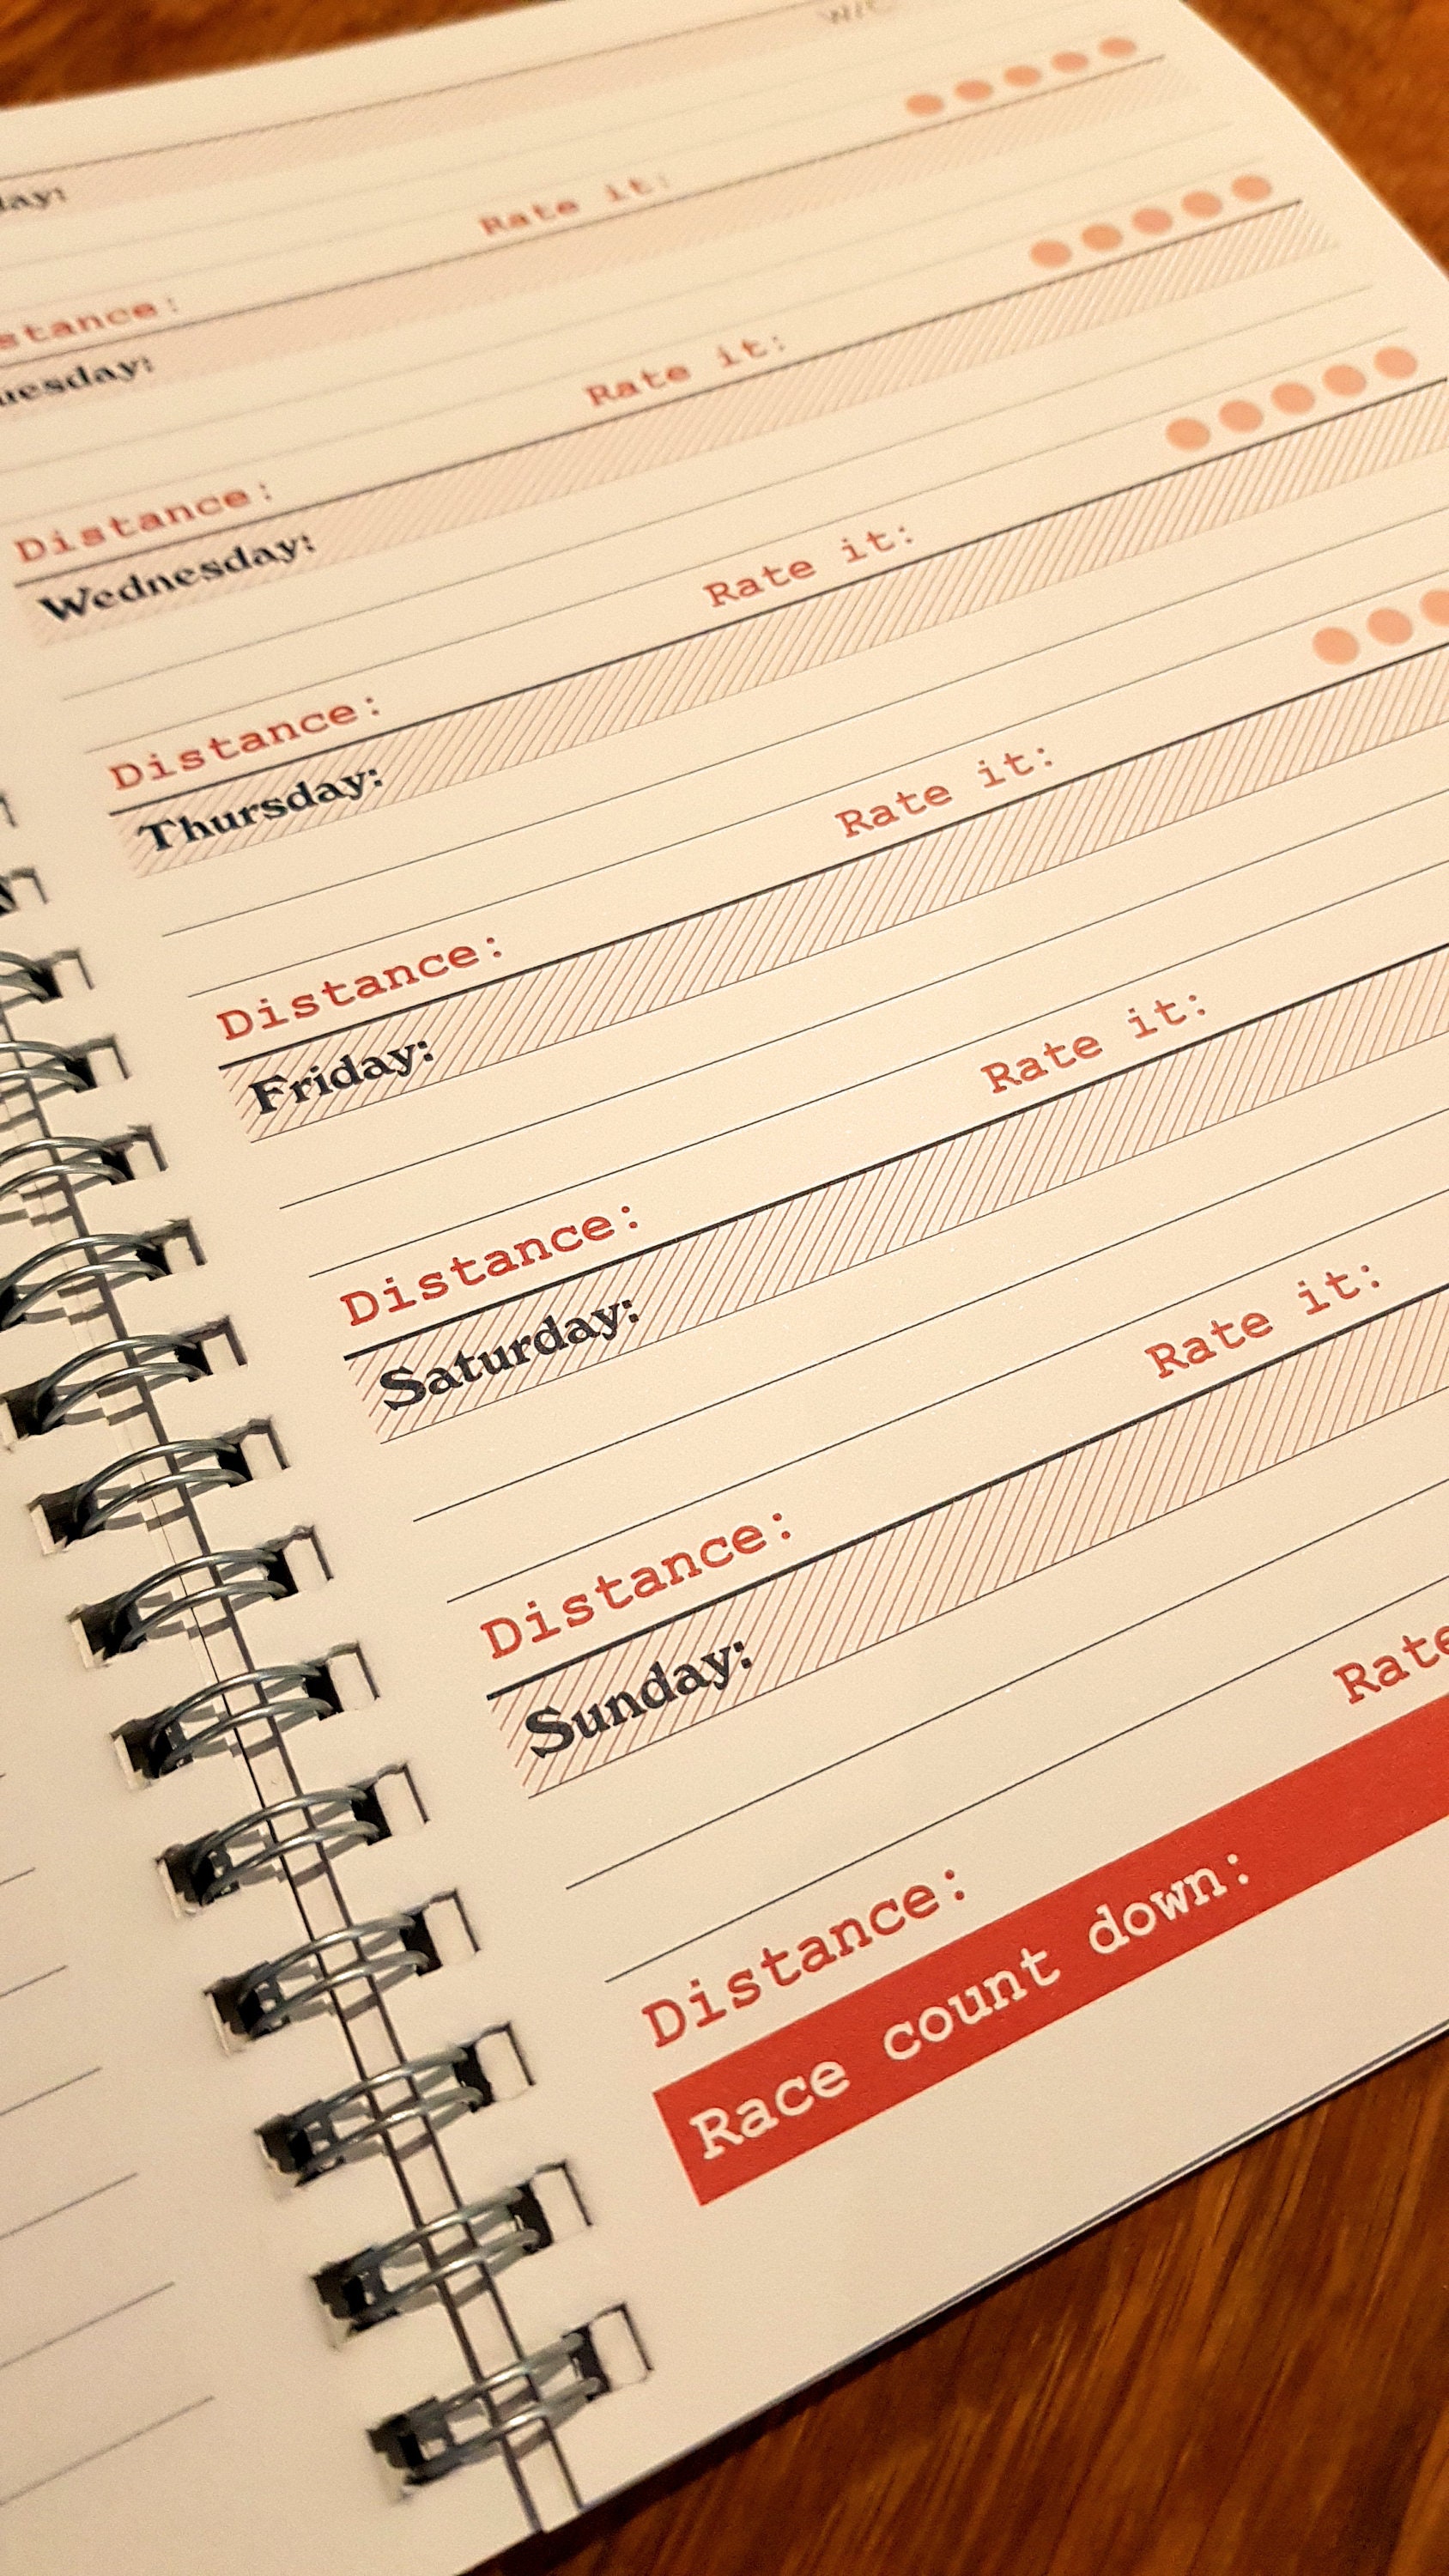 W/C
day:
Distance: Rate it:
uesday:
Distance: Rate it:
Wednesday:
Distance: Rate it:
Thursday:
Distance: Rate it:
Friday:
Distance: Rate it:
Saturday:
Distance: Rate it:
Sunday:
Distance: Rate
Race count down: